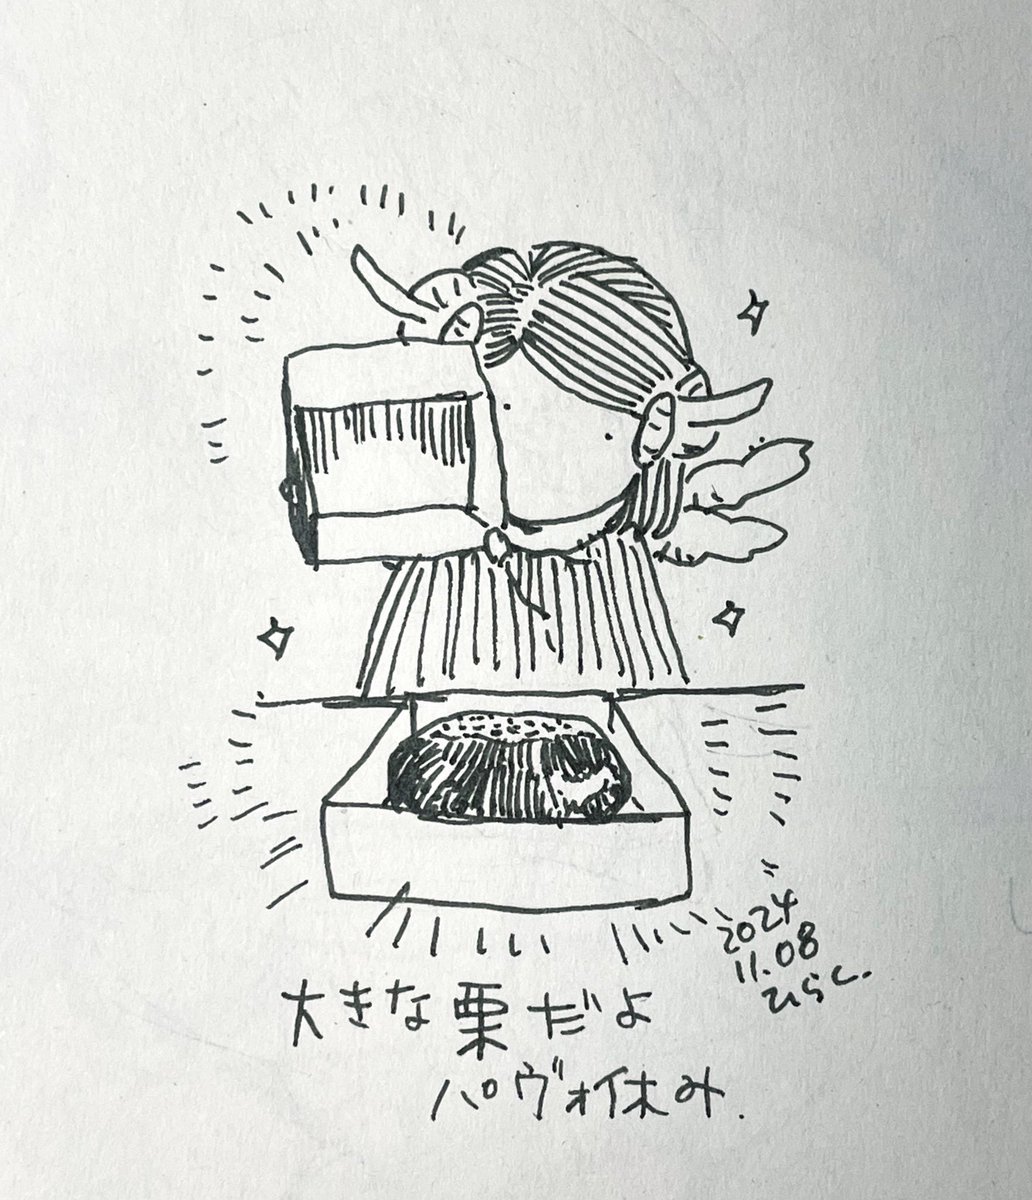 2024
11.08
ひらく.
大きな栗だよ
パヴォ休み.